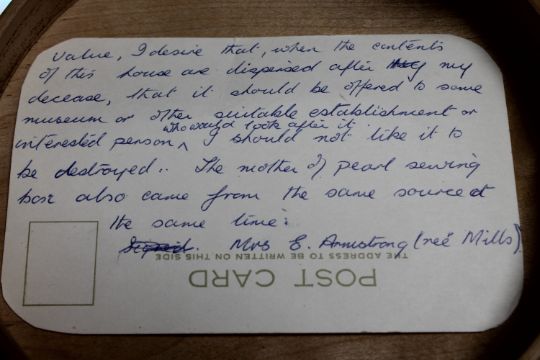 Value, I desire that, when the contents
of this house are dispersed after my
decease, that it should be offered to some
museum or other suitable establishment or
who would look after it
interested person ^ I should not like it to
be destroyed.. The mother of pearl sewing
box also came from the same source at
the same time.
Signed. Mrs E. Armstrong (neé Mills)
THE ADDRESS TO BE WRITTEN ON THIS SIDE
POST CARD